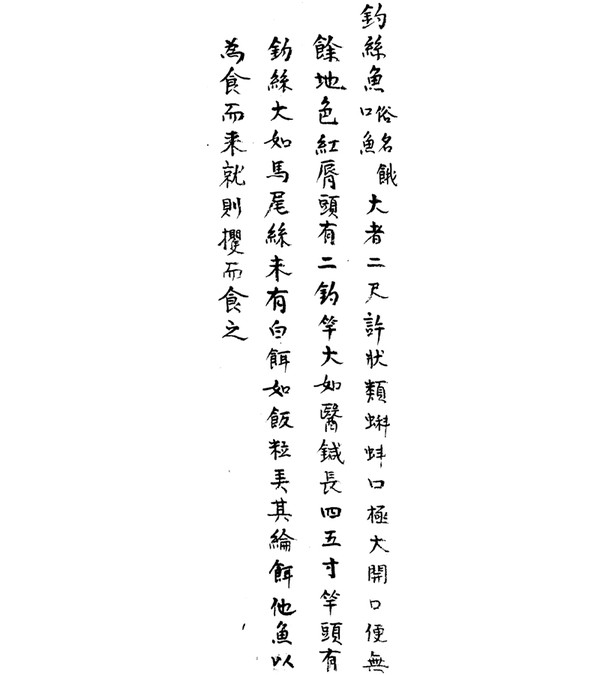 釣絲魚俗名餓口魚大者二尺許狀類蝌蚪口極大開口便無
餘地色紅脣頭有二釣竿大如醫鍼長四五寸竿頭有
釣絲大如馬尾絲末有白餌如飯粒弄其綸餌他魚以
為食而来就則攫而食之